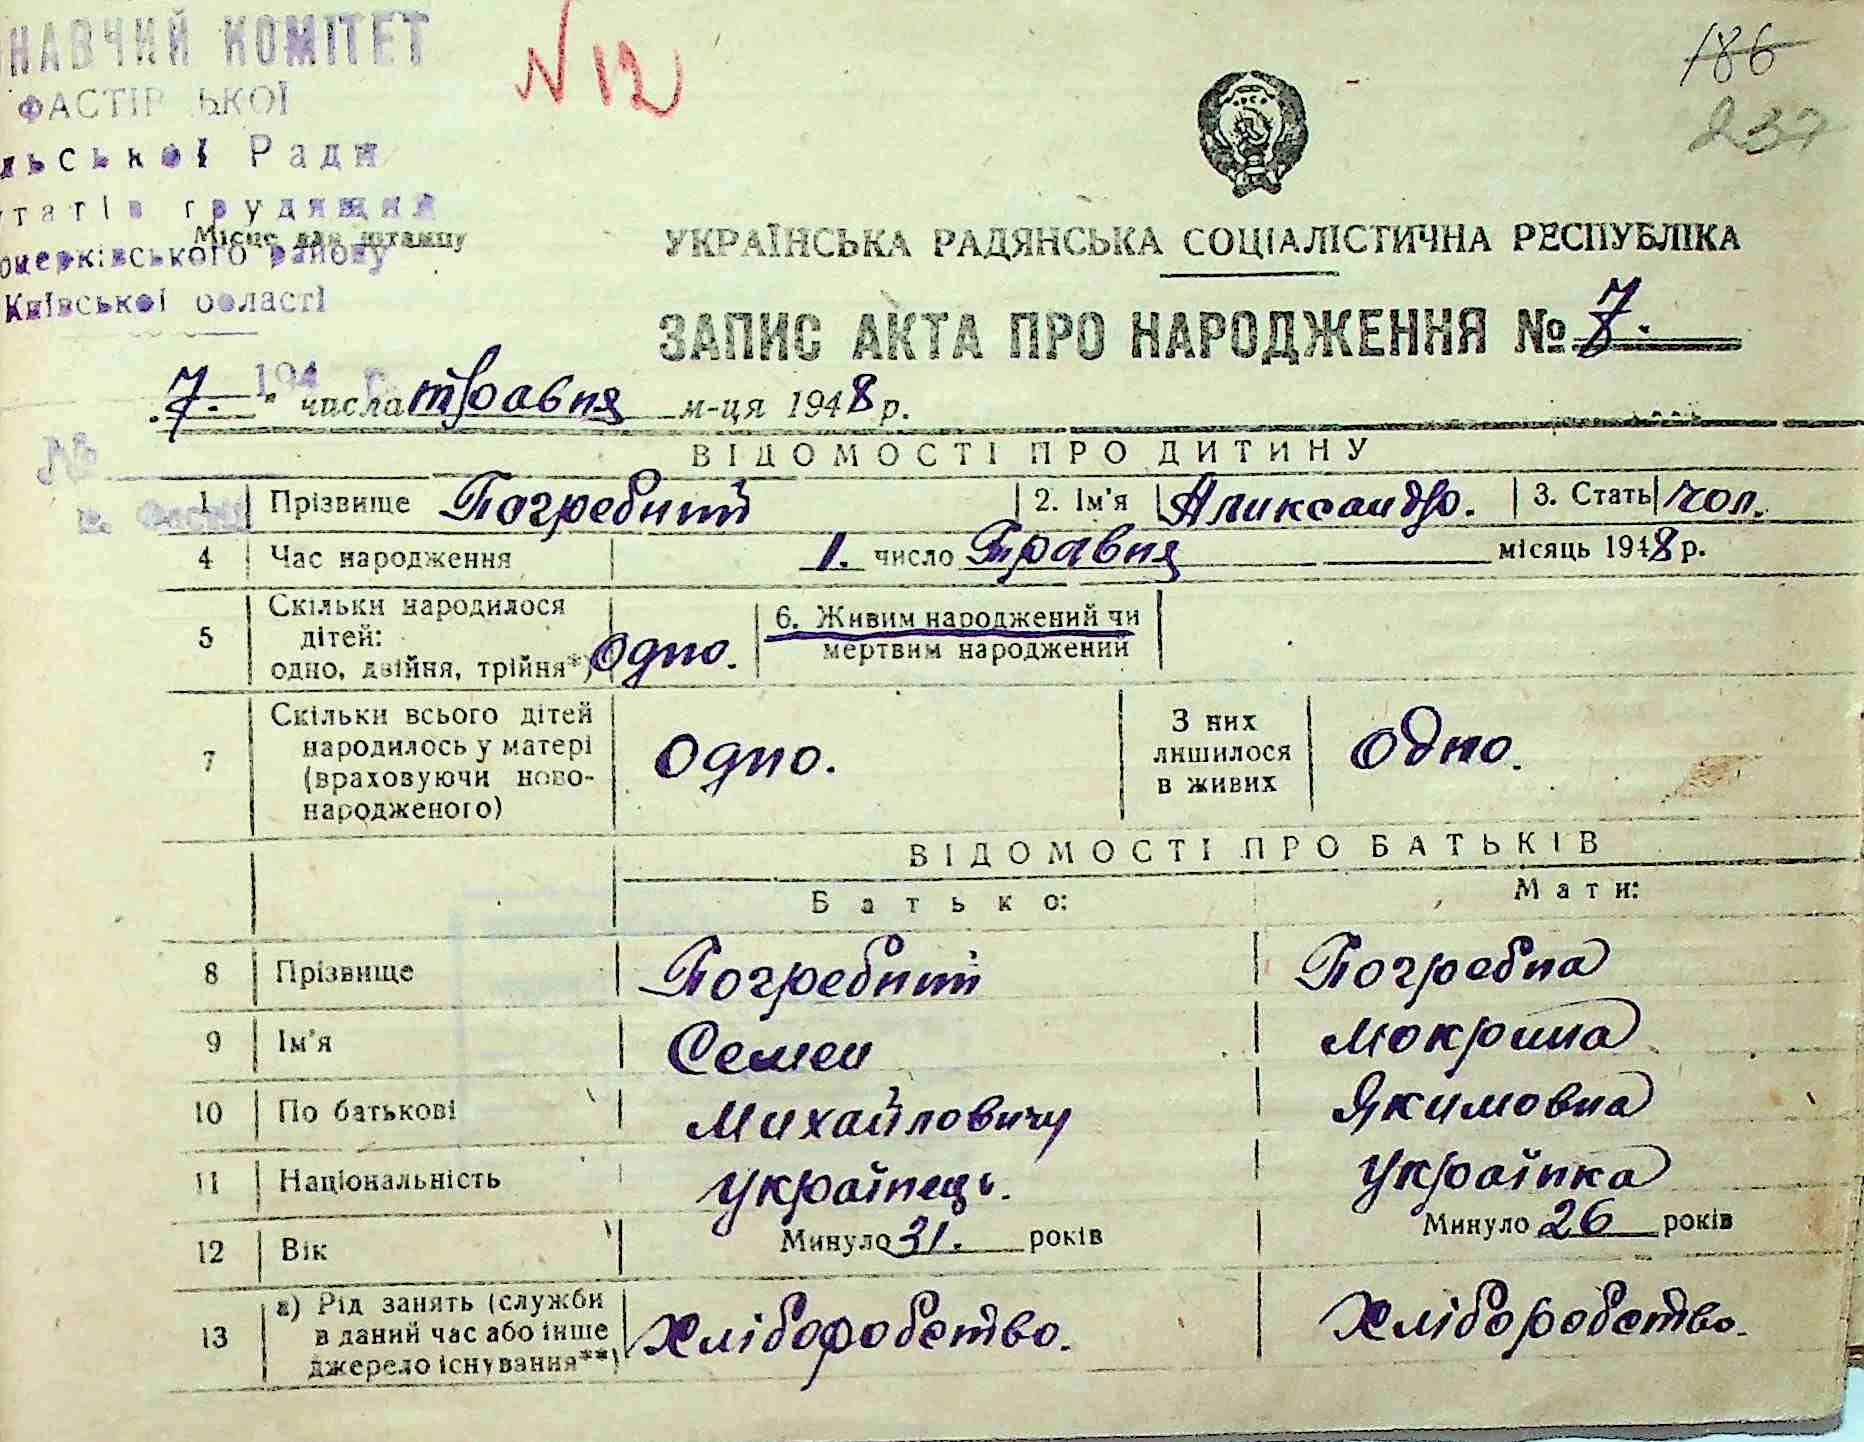 НАВЧИЙ КОМІТЕТ
ФАСТІВ ЬКОЇ
льської Ради
утатів трудящих
оцерківського району
Київської області
Місце для штампу
194 р.
№
N 12
186
237
УКРАЇНСЬКА РАДЯНСЬКА СОЦІАЛІСТИЧНА РЕСПУБЛІКА
ЗАПИС АКТА ПРО НАРОДЖЕННЯ № 7.
„7." числа травня м-ця 1948 р.
ВІДОМОСТІ ПРО ДИТИНУ
1 Прізвище Погребний 2. Ім'я Аликсандр. 3. Стать чол.
4 Час народження 1. число Травня місяць 1948 р.
5 Скільки народилося дітей: одно, двійня, трійня*) Одно. 6. Живим народжений чи мертвим народжений
7 Скільки всього дітей народилось у матері (враховуючи ново-народженого) Одно. З них лишилося в живих Одно.
ВІДОМОСТІ ПРО БАТЬКІВ
Батько: Мати:
8 Прізвище Погребний Погребна
9 Ім'я Семен Мокрина
10 По батькові Михайловичу Якимовна
11 Національність Українець. Українка
12 Вік Минуло 31. років Минуло 26 років
13 а) Рід занять (служби в даний час або інше джерело існування**) Хліборобство. Хліборобство.